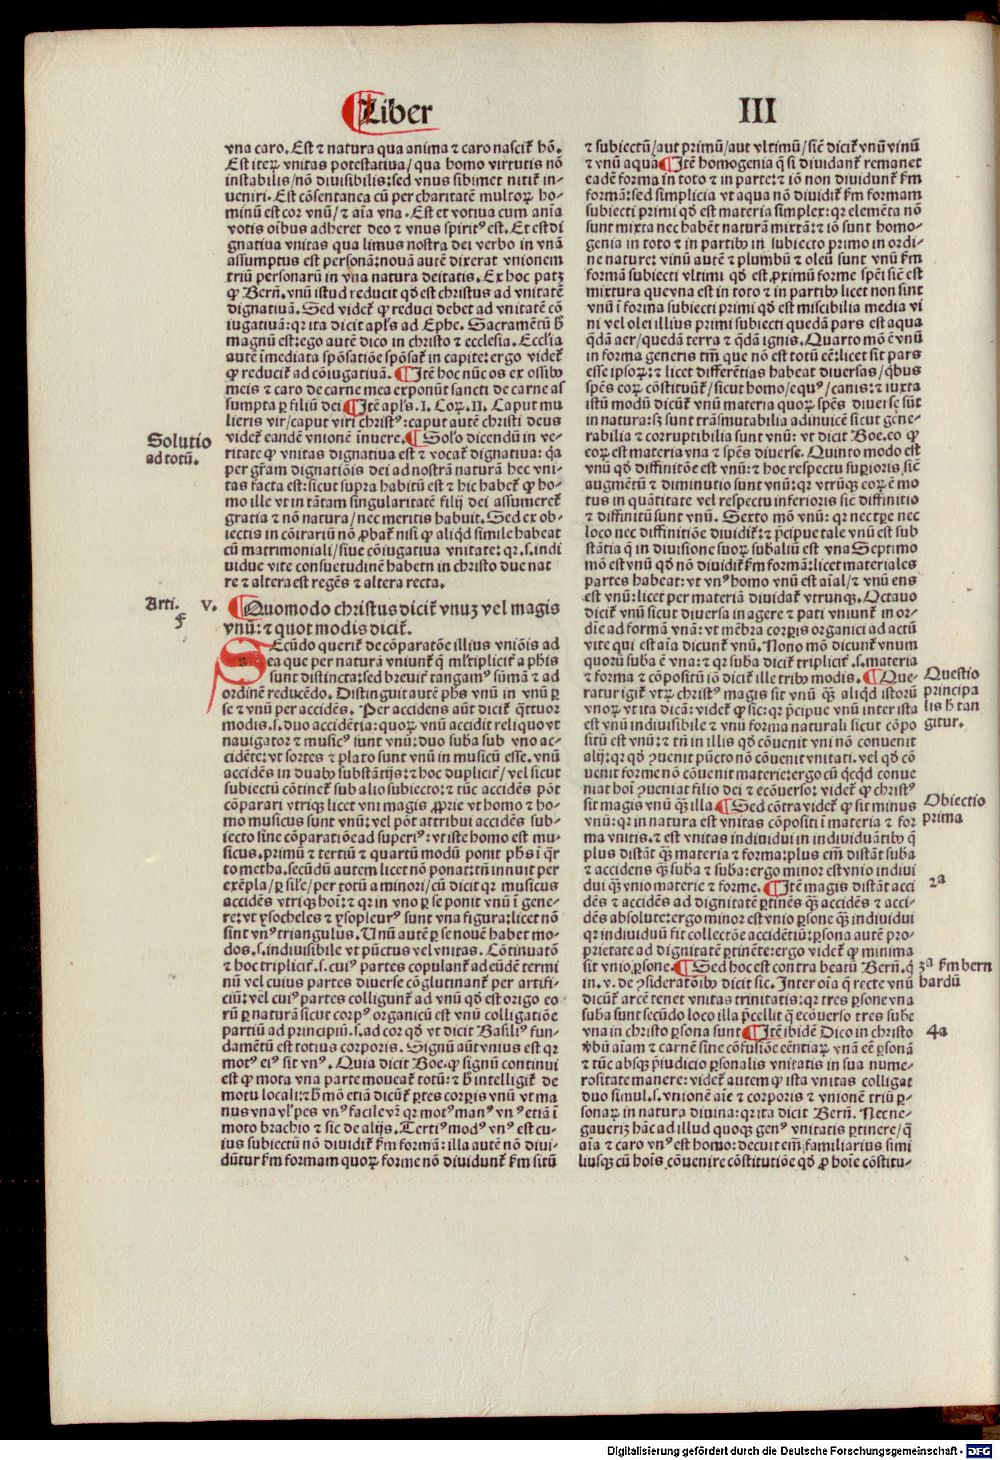 Liber III
vna caro. Est ⁊ natura qua anima ⁊ caro nascit̃ hõ.
Est iteꝝ vnitas potestatiua/qua homo virtutis nõ
instabilis/nõ diuisibilis: sed vnus sibimet nitit̃ in-
ueniri. Est cõsentanea cũ per charitatẽ multoꝝ ho-
minũ est cor vnũ/⁊ aĩa vna. Est et votiua cum anĩa
votis oĩbus adheret deo ⁊ vnus spiritꝰ est. Et est di
gnatiua vnitas qua limus nostra dei verbo in vnã
assumptus est personã: nouã autẽ dixerat vnionem
triũ personarũ in vna natura deitatis. Ex hoc patꝫ
ꝙ Berñ. vnũ istud reducit qđ est christus ad vnitatẽ
dignatiuã. Sed videt̃ ꝙ reduci debet ad vnitatẽ cõ
iugatiuã: qꝛ ita dicit apl̃s ad Ephe. Sacramẽtũ h̃
magnũ est: ego autẽ dico in christo ⁊ ecclesia. Eccl̃ia
autẽ ĩmediata spõsatiõe spõsat̃ in capite: ergo videt̃
ꝙ reducit̃ ad cõiugatiuã. ¶ Itẽ hoc nũc os ex ossibꝰ
meis ⁊ caro de carne mea exponũt sancti de carne as
sumpta ꝑ filiũ dei ¶ Itẽ apl̃s .I. Coꝝ. II. Caput mu
lieris vir/caput viri christꝰ: caput autẽ christi deus
videt̃ eandẽ vnionẽ ĩnuere. ¶ Solo̅ dicendũ in ve-
ritate ꝙ vnitas dignatiua est ⁊ vocat̃ dignatiua: q̃a
per gr̃am dignatiõis dei ad nostrã naturã hec vni-
tas facta est: sicut supra habitũ est ⁊ hic habet̃ ꝙ ho-
mo ille vt in tãtam singularitatẽ filij dei assumeret̃
gratia ⁊ nõ natura/nec meritis habuit. Sed ex ob-
iectis in cõtrariũ nõ ꝓbat̃ nisi ꝙ aliqđ simile habeat
cũ matrimoniali/siue cõiugatiua vnitate: qꝛ .s. indi
uidue vite consuetudinẽ habetñ in christo due nat
re ⁊ altera est regẽs ⁊ altera recta.
Solutio
ad totũ.
Arti. V.
¶ Quomodo christus dicit̃ vnuꝫ vel magis
vnũ: ⁊ quot modis dicit̃.
SEcũdo querit̃ de cõparatõe illius vniõis ad
ea que per naturã vniunt̃ q̃ ml̃tiplicit̃ a ph̃is
sunt distincta: sed breuit̃ tangamꝰ sũmã ⁊ ad
ordinẽ reducẽdo. Distinguit autẽ ph̃s vnũ in vnũ ꝑ
se ⁊ vnũ per accidẽs. Per accidens aũt dicit̃ q̃ttuor
modis .s. duo accidẽtia: quoꝝ vnũ accidit reliquo vt
nauigator ⁊ musicꝰ sunt vnũ: duo sub̃a sub vno ac-
cidẽte: vt sortes ⁊ plato sunt vnũ in musicũ esse. vnũ
accidẽs in duabꝰ substãtijs: ⁊ hoc duplicit̃/vel sicut
subiectũ cõtinet̃ sub alio subiecto: ⁊ tũc accidẽs põt
cõparari vtriqꝫ licet vni magis ꝓprie vt homo ⁊ ho-
mo musicus sunt vnũ: vel põt attribui accidẽs sub-
iecto sine cõparatiõe ad superiꝰ: vt iste homo est mu-
sicus. primũ ⁊ tertiũ ⁊ quartũ modũ ponit ph̃s ĩ q̃r
to metha. secũdũ autem licet nõ ponat: tñ innuit per
exẽpla/ꝑ sil̃e/per totũ a minori/cũ dicit qꝛ musicus
accidẽs vtriqꝫ hoĩ: ⁊ qꝛ in vno ꝑ se ponit vnũ ĩ gene-
re: vt ysocheles ⁊ ysopleurꝰ sunt vna figura: licet nõ
sint vnꝰ triangulus. Unũ autẽ ꝑ se nouẽ habet mo-
dos .s. indiuisibile vt pũctus vel vnitas. Cõtinuatõ
⁊ hoc triplicit̃ .s. cuiꝰ partes copulant̃ ad eũdẽ termi
nũ vel cuius partes diuerse cõglutinant̃ per artifi-
ciũ: vel cuiꝰ partes colligunt̃ ad vnũ qđ est origo eo
rũ ꝑ naturã sicut corpꝰ organicũ est vnũ colligatiõe
partiũ ad principiũ .s. ad cor qđ vt dicit Basiliꝰ fun-
damẽtũ est totius corporis. Signũ aũt vnius est qꝛ
motꝰ eiꝰ sit vnꝰ. Quia dicit Boe. ꝙ signũ continui
est ꝙ mota vna parte moueat̃ totũ: ⁊ h̃ intelligit̃ de
motu locali: ⁊ h̃ mõ etiã dicũt̃ ꝑtes corꝑis vnũ vt ma
nus vna vl̃ pes vnꝰ facile vr̃ qꝛ motꝰ manꝰ vnꝰ etiã ĩ
moto brachio ⁊ sic de alijs. Tertiꝰ modꝰ vnꝰ est cu-
ius subiectũ nõ diuidit̃ ẜm formã: illa autẽ nõ diui-
dũtur ẜm formam quoꝝ forme nõ diuidunt̃ ẜm sitũ
⁊ subiectũ/aut primũ/aut vltimũ/sicẽ dicit̃ vnũ vinũ
⁊ vnũ aqua ¶ Itẽ homogenia q̃ si diuidant̃ remanet
eadẽ forma in toto ⁊ in parte: ⁊ iõ non diuidunt̃ ẜm
formã: sed simplicia vt aqua nõ diuidit̃ ẜm formam
subiecti primi qđ est materia simplex: qꝛ elemẽta nõ
sunt mixta nec habẽt naturã mixtã: ⁊ iõ sunt homo-
genia in toto ⁊ in partibꝰ in subiecto primo in ordi-
ne nature: vinũ autẽ ⁊ plumbũ ⁊ oleũ sunt vnũ ẜm
formã subiecti vltimi qđ est ꝓximũ forme spẽi sicẽ est
mixtura que vna est in toto ⁊ in partibꝰ licet non sint
vnũ ĩ forma subiecti primi qđ est miscibilia media vi
ni vel olei illius primi subiecti quedã pars est aqua
q̃dã aer/quedã terra ⁊ q̃dã ignis. Quarto mõ ẽ vnũ
in forma generis tm̃ que nõ est totũ eẽ: licet sit pars
esse ipsoꝝ: ⁊ licet differẽtias habeat diuersas/q̃bus
spẽs eoꝝ cõstituũt̃/sicut homo/equꝰ/canis: ⁊ iuxta
istũ modũ dicũt̃ vnũ materia quoꝝ spẽs diuerse sũt
in natura: sꝫ sunt trãsmutabilia adinuicẽ sicut gene-
rabilia ⁊ corruptibilia sunt vnũ: vt dicit Boe. eo ꝙ
eoꝝ est materia vna ⁊ spẽs diuerse. Quinto modo est
vnũ qđ diffinitõe est vnũ: ⁊ hoc respectu suꝑioris, sicẽ
augmẽtũ ⁊ diminutio sunt vnũ: qꝛ vtrũqꝫ eoꝝ ẽ mo
tus in quãtitate vel respectu inferioris sicẽ diffinitio
⁊ diffinitũ sunt vnũ. Sexto mõ vnũ: qꝛ nec tꝑe nec
loco nec diffinitiõe diuidit̃: ⁊ p̃cipue tale vnũ est sub
stãtia q̃ in diuisione suoꝝ sub̃aliũ est vna Septimo
mõ est vnũ qđ nõ diuidit̃ ẜm formã: licet materiales
partes habeat: vt vnꝰ homo vnũ est aĩal/⁊ vnũ ens
est vnũ: licet per materiã diuidat̃ vtrunqꝫ. Octauo
dicit̃ vnũ sicut diuersa in agere ⁊ pati vniunt̃ in or-
dĩe ad formã vnã: vt mẽbra corꝑis organici ad actũ
vite qui est aĩa dicunt̃ vnũ. Nono mõ dicunt̃ vnum
quorũ sub̃a ẽ vna: ⁊ qꝛ sub̃a dicit̃ triplicit̃ .s. materia
⁊ forma ⁊ cõpositũ iõ dicit̃ ille tribꝰ modis. ¶ Que-
ratur igit̃ vtꝝ christꝰ magis sit vnũ q̃ꝫ aliqđ istorũ
vnoꝝ vt ita dicã: videt̃ ꝙ sic: qꝛ p̃cipue vnũ inter ista
est vnũ indiuisibile ⁊ vnũ forma naturali sicut cõpo
sitũ est vnũ: ⁊ tñ in illis qđ cõuenit vni nõ conuenit
alij: qꝛ qđ ꝯuenit pũcto nõ cõuenit vnitati. vel qđ cõ
uenit forme nõ cõuenit materie: ergo cũ q̃cqđ conue
niat hoĩ ꝯueniat filio dei ⁊ ecõuerso: videt̃ ꝙ christꝰ
sit magis vnũ q̃ꝫ illa ¶ Sed cõtra videt̃ ꝙ sit minus
vnũ: qꝛ in natura est vnitas cõpositi ĩ materia ⁊ for
ma vnitis. ⁊ est vnitas indiuidui in indiuiduãtibꝰ q̃
plus distãt q̃ꝫ materia ⁊ forma: plus em̃ distãt sub̃a
⁊ accidens q̃ꝫ sub̃a ⁊ sub̃a: ergo minor est vnio indiui
dui q̃ꝫ vnio materie ⁊ forme. ¶ Itẽ magis distãt acci
dẽs ⁊ accidẽs ad dignitatẽ ꝑtinẽs q̃ꝫ accidẽs ⁊ acci-
dẽs absolute: ergo minor est vnio ꝑsone q̃ꝫ indiuidui
qꝛ indiuiduũ fit collectõe accidẽtiũ: ꝑsona autẽ pro-
prietate ad dignitatẽ ꝑtinẽte: ergo videt̃ ꝙ minima
sit vnio ꝑsone. ¶ Sed hoc est contra beatũ Berñ. q̃
in .v. de ꝯsideratõibꝰ dicit sic. Inter oĩa q̃ recte vnũ
dicũt̃ arcẽ tenet vnitas trinitatis: qꝛ tres ꝑsone vna
sub̃a sunt secũdo loco illa p̃cellit q̃ ecõuerso tres sub̃e
vna in christo ꝑsona sunt ¶ Itẽ ibidẽ Dico in christo
v̾bũ aĩam ⁊ carnẽ sine cõfusiõe eẽntiaꝝ vnã eẽ ꝑsonã
⁊ tũc absqꝫ p̃iudicio ꝑsonalis vnitatis in sua nume-
rositate manere: videt̃ autem ꝙ ista vnitas colligat
duo simul .s. vnionẽ aĩe ⁊ corporis ⁊ vnionẽ triũ ꝑ-
sonaꝝ in natura diuina: qꝛ ita dicit Berñ. Nec ne-
gaueriꝫ hãc ad illud quoqꝫ genꝰ vnitatis ꝑtinere/q̃
aĩa ⁊ caro vnꝰ est homo: decuit em̃ familiarius simi
liusqꝫ cũ hoĩs cõuenire cõstitutiõe qđ ꝓ hoĩe cõstitu-
Questio
principa
lis h̃ tan
gitur.
Obiectio
prima
2ª
3ª ẜm bern
hardũ
4a
Digitalisierung gefördert durch die Deutsche Forschungsgemeinschaft - DFG